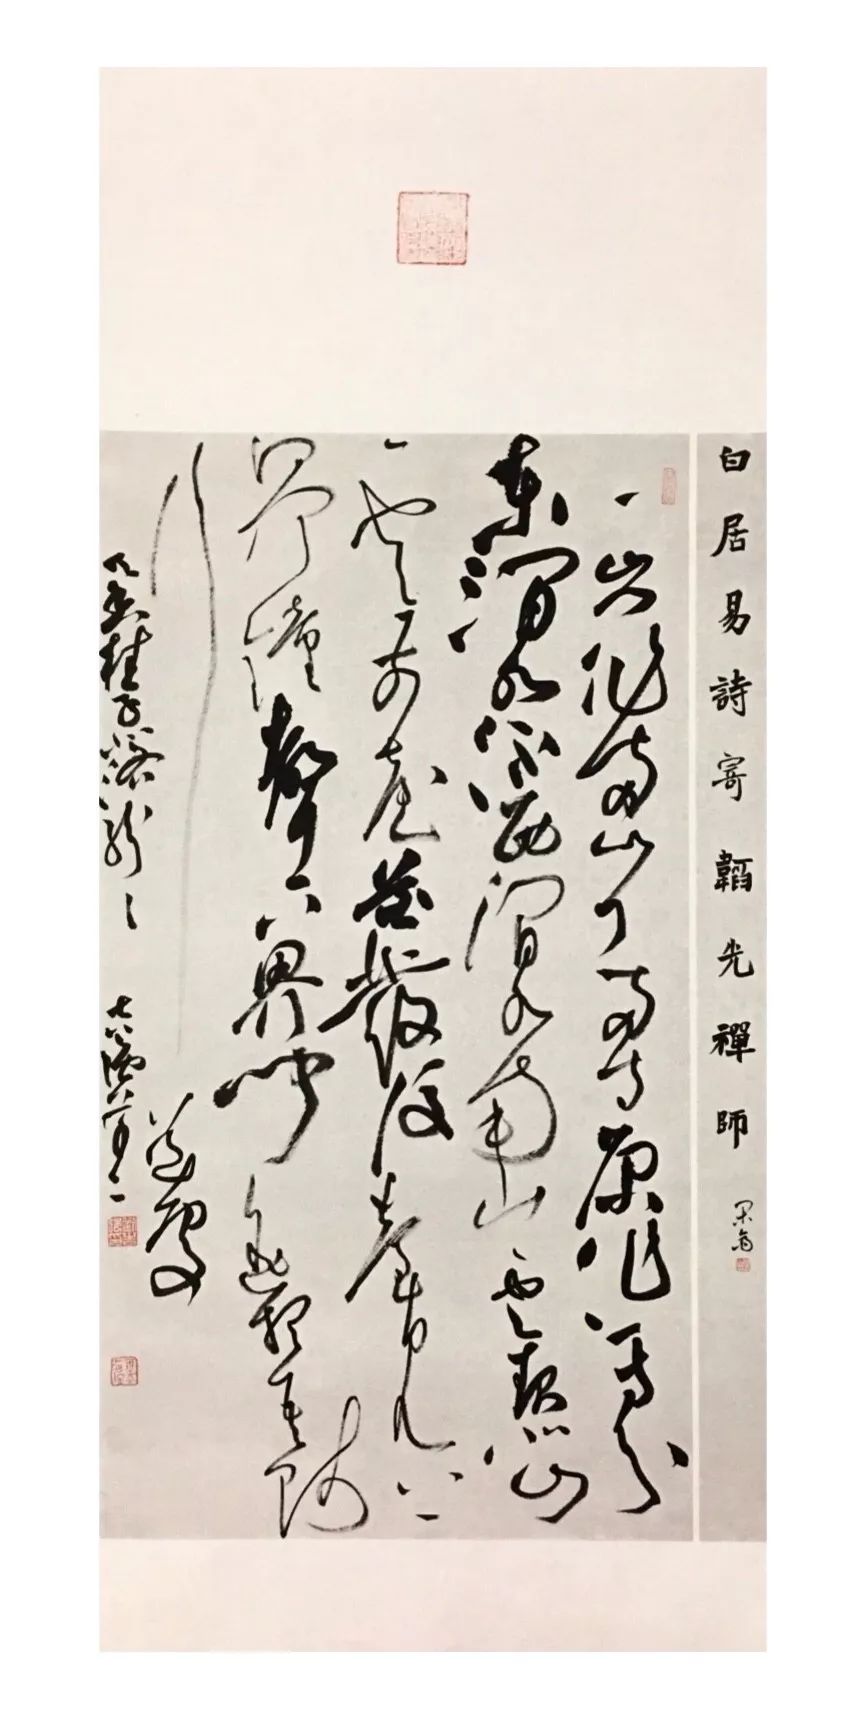 白居易詩寄韜光禪師
一山門作兩山門兩寺原從一寺分
東澗水流西澗水南山雲起北山
雲前臺花發後臺見上
界鐘聲下界聞遙想吾師
行道處
天香桂子落紛紛